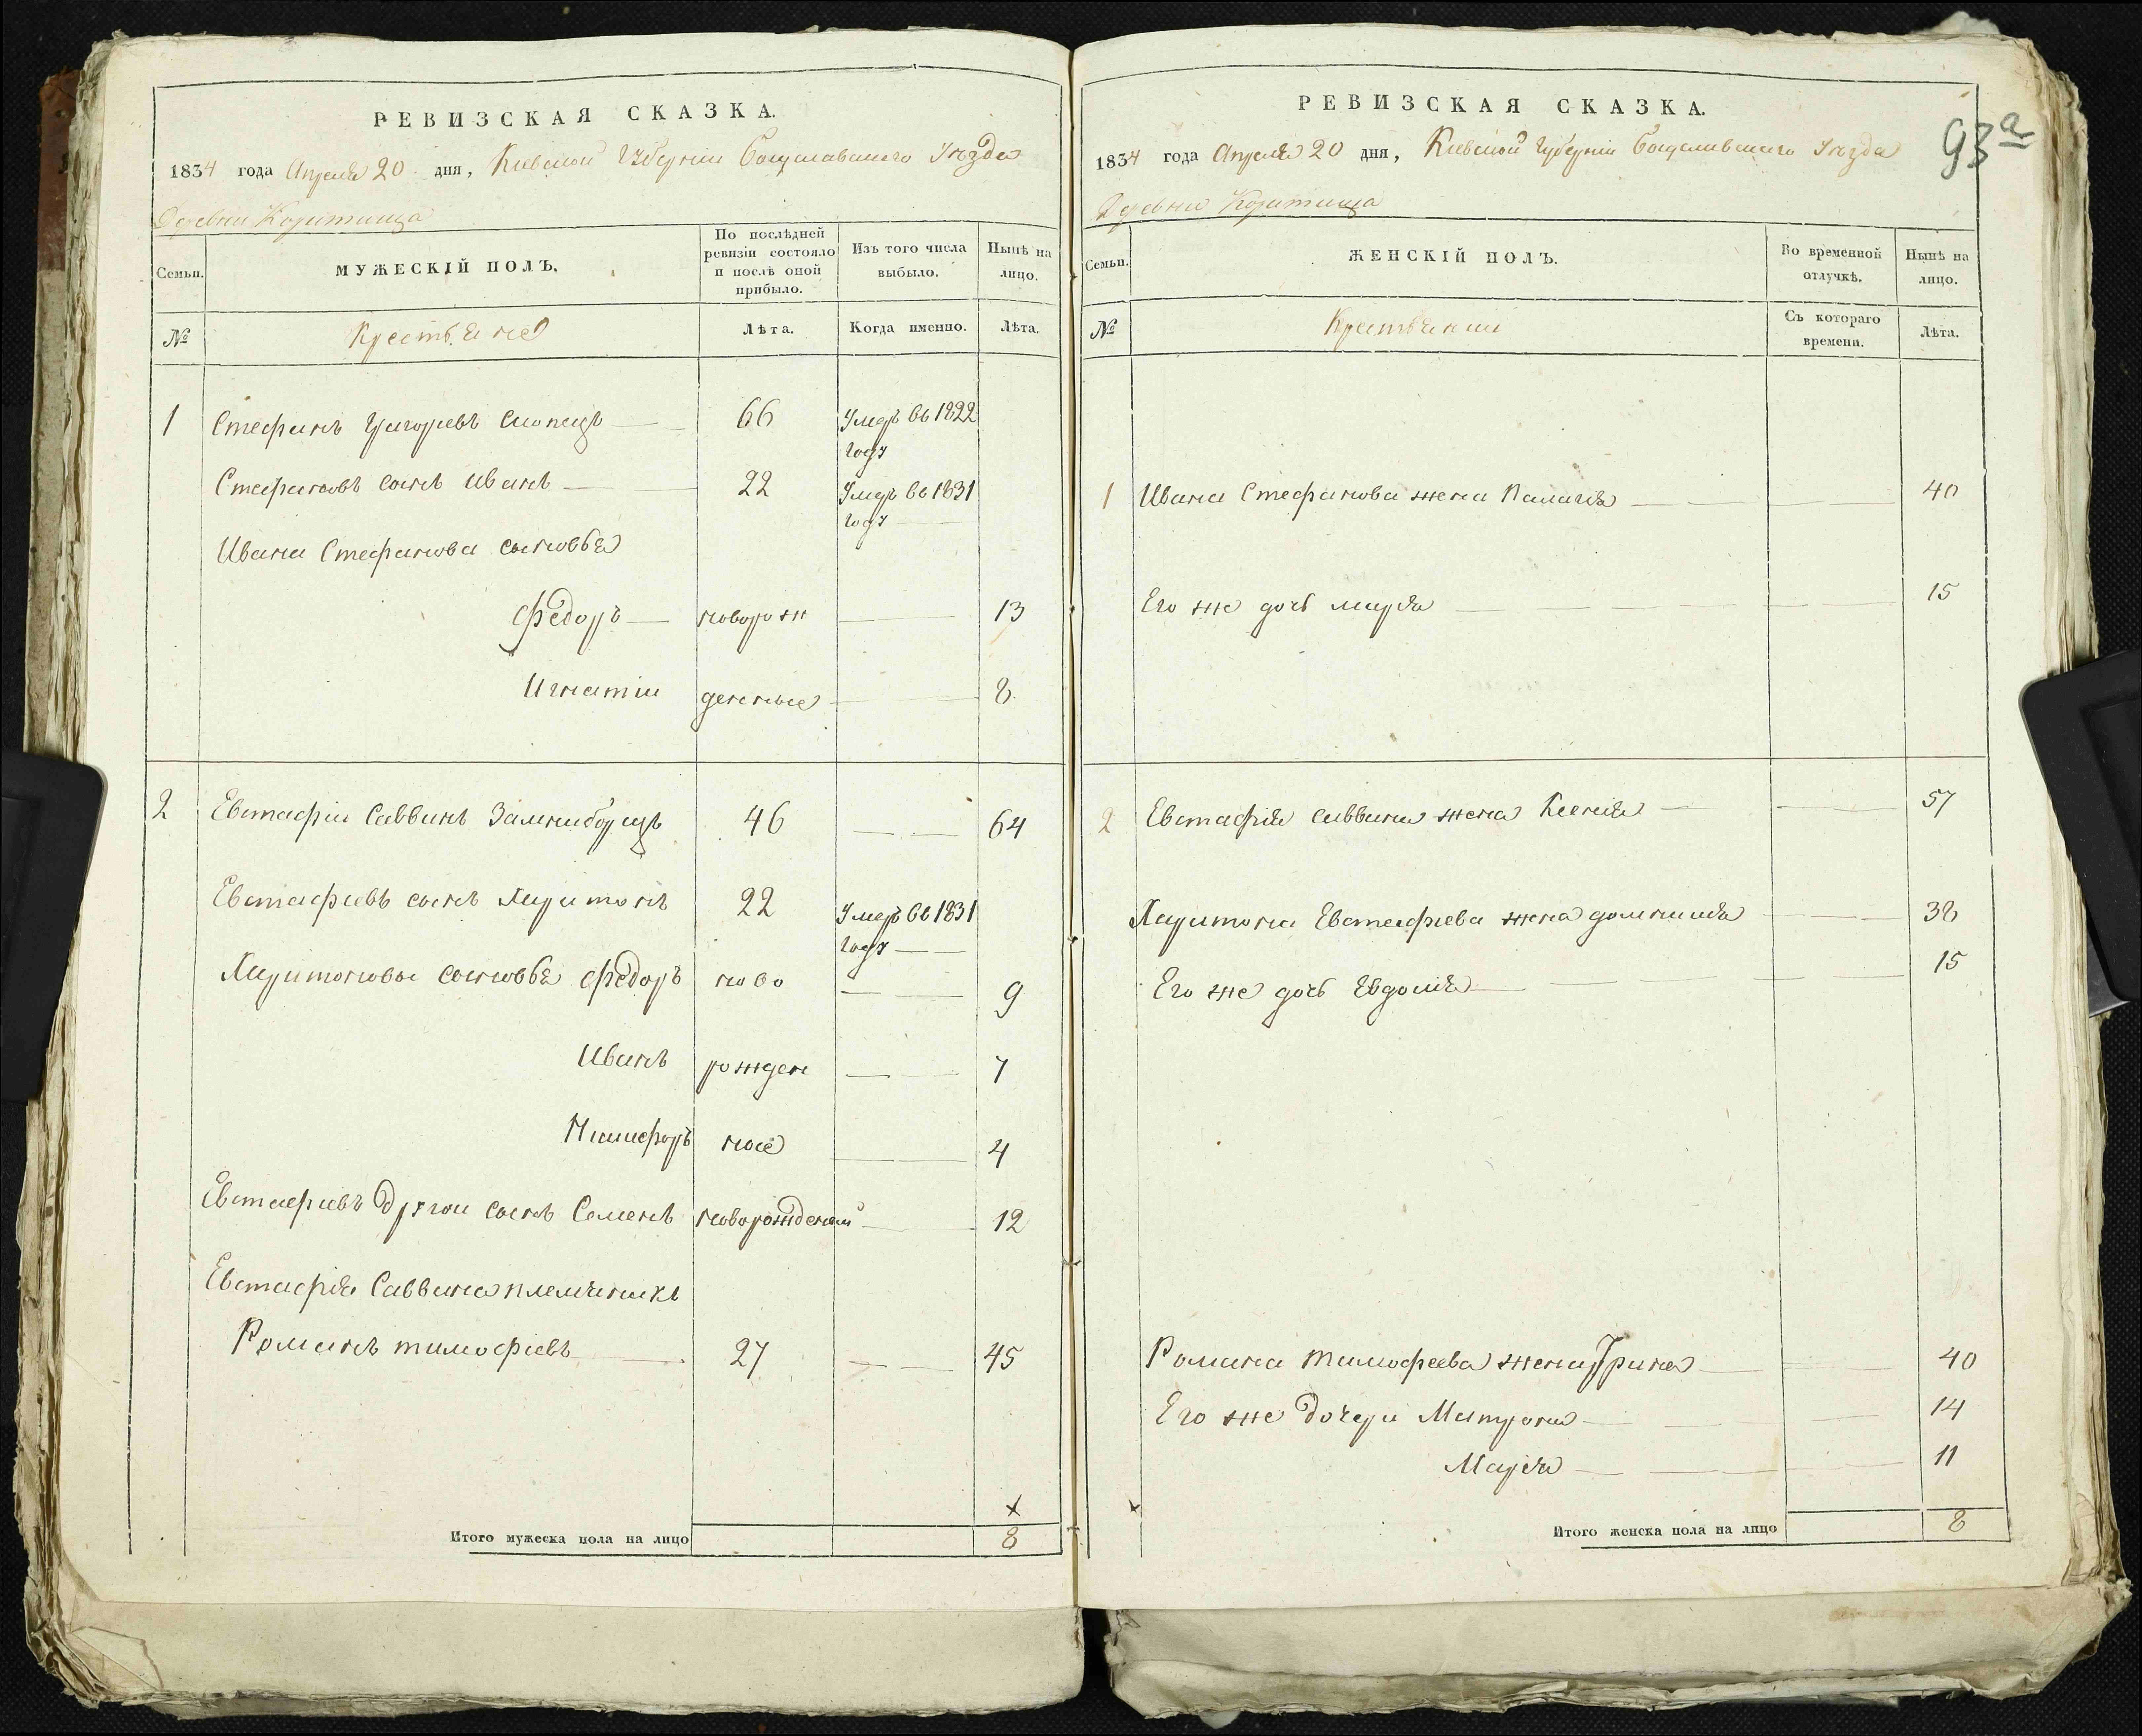 РЕВИЗСКАЯ СКАЗКА.
1834 года Апреля 20 дня, Киевской Губернии Богуславскаго Уѣзда
Деревни Коритища
Семьи.
МУЖЕСКІЙ ПОЛЪ.
По послѣдней
ревизіи состояло
и послѣ оной
прибыло.
Изъ того числа
выбыло.
Нынѣ на
лицо.
№
Крестьяне
Лѣта.
Когда именно.
Лѣта.
1 Стефанъ Григорьевъ 66 Умеръ въ 1822
году
Стефановъ сынъ Иванъ 22 Умеръ въ 1831
году
Ивана Стефанова сыновья
Федоръ новорож 13
Игнатіи денные 8
2 Евстафіи Саввинъ 46 64
Евстафіевъ сынъ Харитонъ 22 Умеръ въ 1831
году
Харитоновы сыновья Федоръ ново 9
Иванъ рожден 7
Никифоръ ные 4
Евстафіевъ другои сынъ Семенъ новорожденный 12
Евстафія Саввина племяникъ
Романъ тимофіевъ 27 45
Итого мужеска пола на лицо 8
РЕВИЗСКАЯ СКАЗКА.
93а
1834 года Апреля 20 дня, Киевской Губерніи Богуславскаго Уѣзда
Деревни Коритища
Семьи.
ЖЕНСКІЙ ПОЛЪ.
Во временной
отлучкѣ.
Нынѣ на
лицо.
№
Крестьянки
Съ котораго
времени.
Лѣта.
1 Ивана Стефанова жена Палагія 40
Его же дочь марія 15
2 Евстафія саввина жена Ксенія 57
Харитона Евстафіева жена домникія 38
Его же дочь Евдокія 15
Романа Тимофеева жена Ірина 40
Его же дочери Матрона 14
Марія 11
Итого женска пола на лицо 8